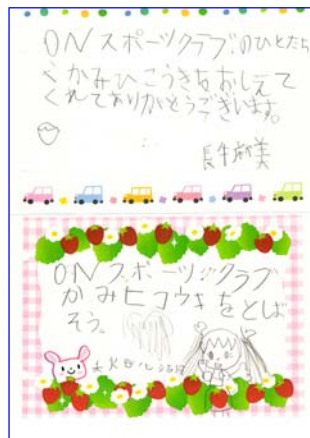 ONスポーツクラブのひとたち
へ かみひこうきをおしえて
くれてありがとうございます。
ONスポーツクラブ
かみヒコウキをとば
そう。